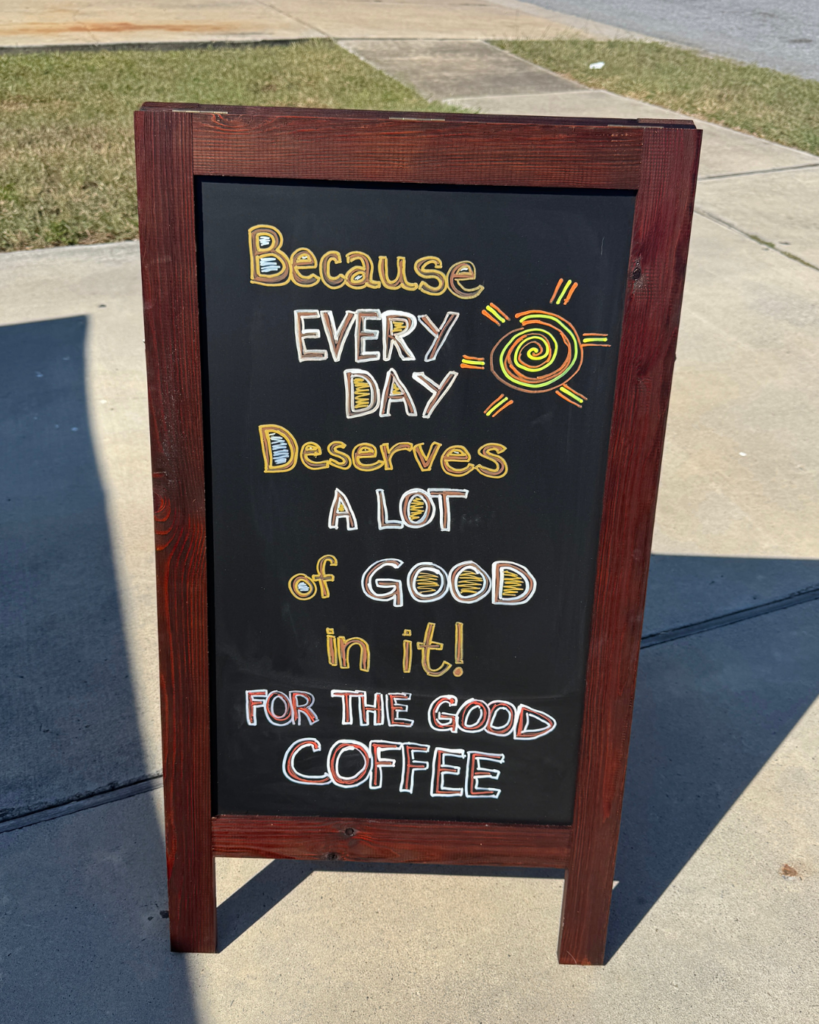 Because
EVERY
DAY
Deserves
A LOT
of GOOD
in it!
FOR THE GOOD
COFFEE